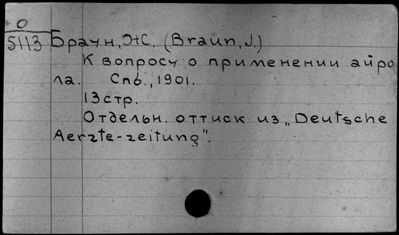 О
5113
Браун, Ж. (Braun, J.)
К вопросу о применении айро
ла. Спб., 1901.
13 стр.
Отдельн. оттиск из „Deutsche
Aerzte-zeitung".